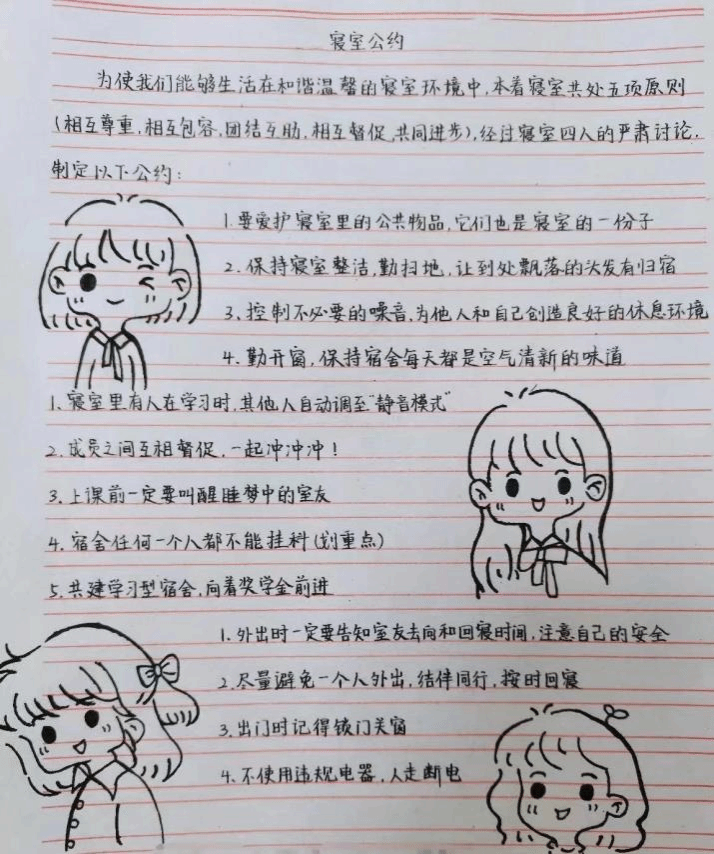 寝室公约
为使我们能够生活在和谐温馨的寝室环境中,本着寝室共处五项原则
(相互尊重,相互包容,团结互助,相互督促,共同进步),经过寝室四人的严肃讨论.
制定以下公约:
1.要爱护寝室里的公共物品,它们也是寝室的一份子
2.保持寝室整洁,勤扫地,让到处飘落的头发有归宿
3、控制不必要的噪音,为他人和自己创造良好的休息环境
4.勤开窗,保持宿舍每天都是空气清新的味道
1.寝室里有人在学习时,其他人自动调至"静音模式"
2.成员之间互相督促,一起冲冲冲!
3.上课前一定要叫醒睡梦中的室友
4.宿舍任何一个人都不能挂科(划重点)
5.共建学习型宿舍,向着奖学金前进
1.外出时一定要告知室友去向和回寝时间,注意自己的安全
2.尽量避免一个人外出,结伴同行,按时回寝
3.出门时记得锁门关窗
4.不使用违规电器,人走断电